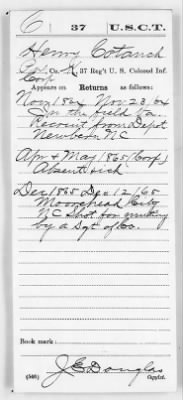 C 37 U.S.C.T.
Henry Cotanch
Pvt., Co. K, 37 Reg't U. S. Colored Inf.
Corp
Appears on Returns as follows:
Nov 1864 Nov 23, 64
In the field Va.
Recruit from Depot
Newbern NC
Apr & May 1865 (Corp)
Absent sick
Dec 1865 Dec 12/65
Moorehead City
NC Shot for mutiny
by a Sgt of Co.
Book mark:
(546) J E Douglas
Copyist.